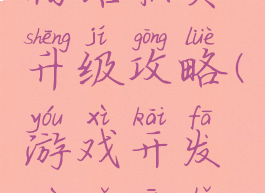 shēng jí gōng lüè
升级攻略(
yóu xì kāi fā
游戏开发